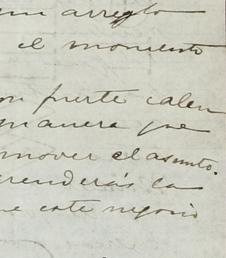 un arreglo
el momento
un fuerte calen
manera que
mover el asunto.
renderás la
ue este negocio